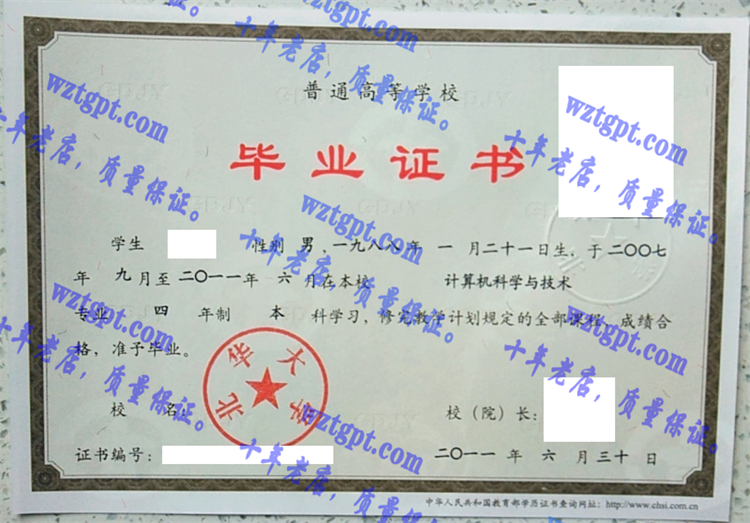 普通高等学校
毕业证书
学生 性别 男,一九八八年 一 月二十一日生,于二〇〇七
年 九月至二〇一一年 六 月在本校 计算机科学与技术
专业 四 年制 本 科学习,修完教学计划规定的全部课程,成绩合
格,准予毕业。
北华大学
校 名: 校(院)长:
证书编号: 二〇一一年 六 月三十日
中华人民共和国教育部学历证书查询网址:http://www.chsi.com.cn
十年老店,质量保证。
wztgpt.com
十年老店,质量保证。
wztgpt.com
十年老店,质量保证。
wztgpt.com
十年老店,质量保证。
wztgpt.com
十年老店,质量保证。
wztgpt.com
十年老店,质量保证。
wztgpt.com
十年老店,质量保证。
wztgpt.com
十年老店,质量保证。
wztgpt.com
十年老店,质量保证。